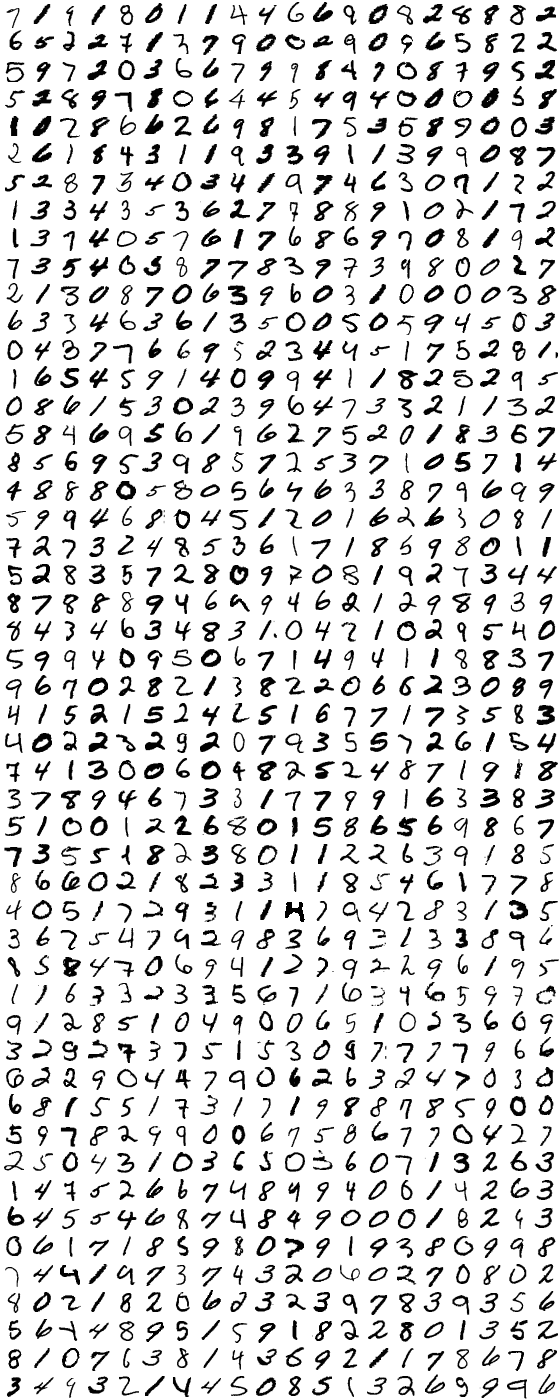 7 1 9 1 8 0 1 1 4 4 6 6 9 0 8 2 8 8 8 2
6 5 2 2 7 1 3 7 9 0 0 2 9 0 9 6 5 8 2 2
5 9 7 2 0 3 6 6 7 9 9 8 4 9 0 8 7 9 5 2
5 2 8 9 7 8 0 6 4 4 5 4 9 4 0 0 0 0 5 8
1 0 2 8 6 6 2 6 9 8 1 7 5 3 5 8 9 0 0 3
2 6 1 8 4 3 1 1 9 3 3 9 1 1 3 9 9 0 8 7
5 2 8 7 3 4 0 3 4 1 9 7 4 6 3 0 7 1 2 2
1 3 3 4 3 5 3 6 2 7 7 8 8 9 1 0 2 1 7 2
1 3 7 4 0 5 7 6 1 7 6 8 6 9 7 0 8 1 9 2
7 3 5 4 0 5 8 7 7 8 3 9 7 3 9 8 0 0 2 7
2 1 3 0 8 7 0 6 3 9 6 0 3 1 0 0 0 0 3 8
6 3 3 4 6 3 6 1 3 5 0 0 5 0 5 9 4 5 0 3
0 4 3 7 7 6 6 9 5 2 3 4 4 5 1 7 5 2 8 1
1 6 5 4 5 9 1 4 0 9 9 4 1 1 8 2 5 2 9 5
0 8 6 1 5 3 0 2 3 9 6 4 7 3 3 2 1 1 3 2
5 8 4 6 9 5 6 1 9 6 2 7 5 2 0 1 8 3 6 7
8 5 6 9 5 3 9 8 5 7 2 5 3 7 1 0 5 7 1 4
4 8 8 8 0 5 8 0 5 6 4 6 3 3 8 7 9 6 9 9
5 9 9 4 6 8 0 4 5 1 2 0 1 6 2 6 3 0 8 1
7 2 7 3 2 4 8 5 3 6 1 7 1 8 5 9 8 0 1 1
5 2 8 3 5 7 2 8 0 9 7 0 8 1 9 2 7 3 4 4
8 7 8 8 8 9 4 6 9 9 4 6 2 1 2 9 8 9 3 9
8 4 3 4 6 3 4 8 3 1 0 4 2 1 0 2 9 5 4 0
5 9 9 4 0 9 5 0 6 7 1 4 9 4 1 1 8 8 3 7
9 6 7 0 2 8 2 1 3 8 2 2 0 6 6 2 3 0 8 9
4 1 5 2 1 5 2 4 2 5 1 6 7 7 1 7 3 5 8 3
4 0 2 2 3 2 9 2 0 7 9 3 5 5 7 2 6 1 5 4
7 4 1 3 0 0 6 0 9 8 2 5 2 4 8 7 1 9 1 8
3 7 8 9 4 6 7 3 3 1 7 7 9 9 1 6 3 3 8 3
5 1 0 0 1 2 2 6 8 0 1 5 8 6 5 6 9 8 6 7
7 3 5 5 1 8 2 3 8 0 1 1 2 2 6 3 9 1 8 5
8 6 6 0 2 1 8 2 3 3 1 1 8 5 4 6 1 7 7 8
4 0 5 1 7 2 9 3 1 1 4 7 9 4 2 8 3 1 3 5
3 6 2 5 4 7 9 2 9 8 3 6 9 3 1 3 3 8 9 6
8 5 8 4 7 0 6 9 4 1 2 7 9 2 2 9 6 1 9 5
1 1 6 3 3 2 3 3 5 6 7 1 6 3 4 6 5 9 7 0
9 1 2 8 5 1 0 4 9 0 0 6 5 1 0 2 3 6 0 9
3 2 9 2 7 3 7 5 1 5 3 0 9 7 7 7 7 9 6 6
6 2 2 9 0 4 4 7 9 0 6 2 6 3 2 4 7 0 3 0
6 8 1 5 5 1 7 3 1 7 1 9 8 8 7 8 5 9 0 0
5 9 7 8 2 9 9 0 0 6 7 5 8 6 7 7 0 4 2 7
2 5 0 4 3 1 0 3 6 5 0 3 6 0 7 1 3 2 6 3
1 4 7 5 2 6 6 7 4 8 9 9 4 0 0 1 4 2 6 3
6 4 5 5 4 6 8 7 4 8 4 9 0 0 0 1 8 2 4 3
0 6 1 7 1 8 5 9 8 0 7 9 1 9 3 8 0 9 9 8
7 4 4 1 9 7 3 7 4 3 2 0 6 0 2 7 0 8 0 2
8 0 2 1 8 2 0 6 2 3 2 3 9 7 8 3 9 3 5 6
5 6 7 4 8 9 5 1 5 9 1 8 2 2 8 0 1 3 5 2
8 1 0 7 6 3 8 1 4 3 6 9 2 1 1 7 8 6 7 8
3 4 9 3 2 1 4 4 5 0 8 5 1 3 2 6 9 9 9 6